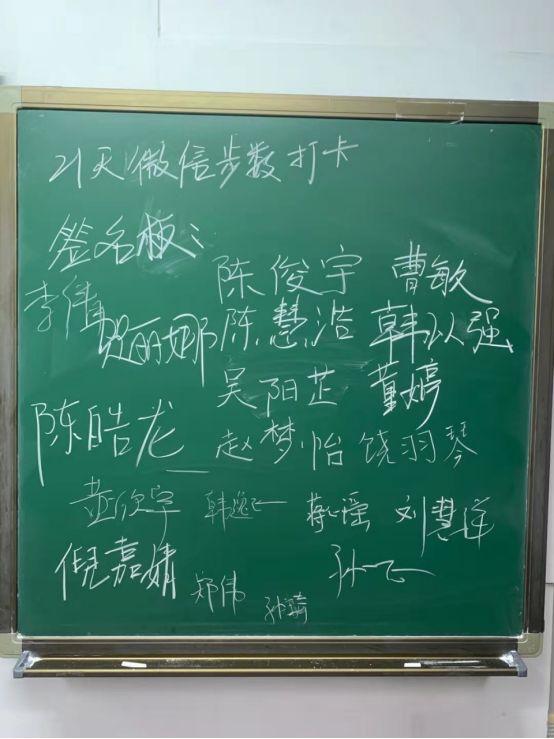 21天微信步数打卡
签名板:
陈俊宇 曹敏
李伟 贺丽娜 陈慧浩 韩以强
吴阳芷 董婷
陈皓龙 赵梦怡 饶羽琴
黄欣宇 韩逸飞 蒋心瑶 刘慧洋
倪嘉婧 郑伟 孙飞
孙琦